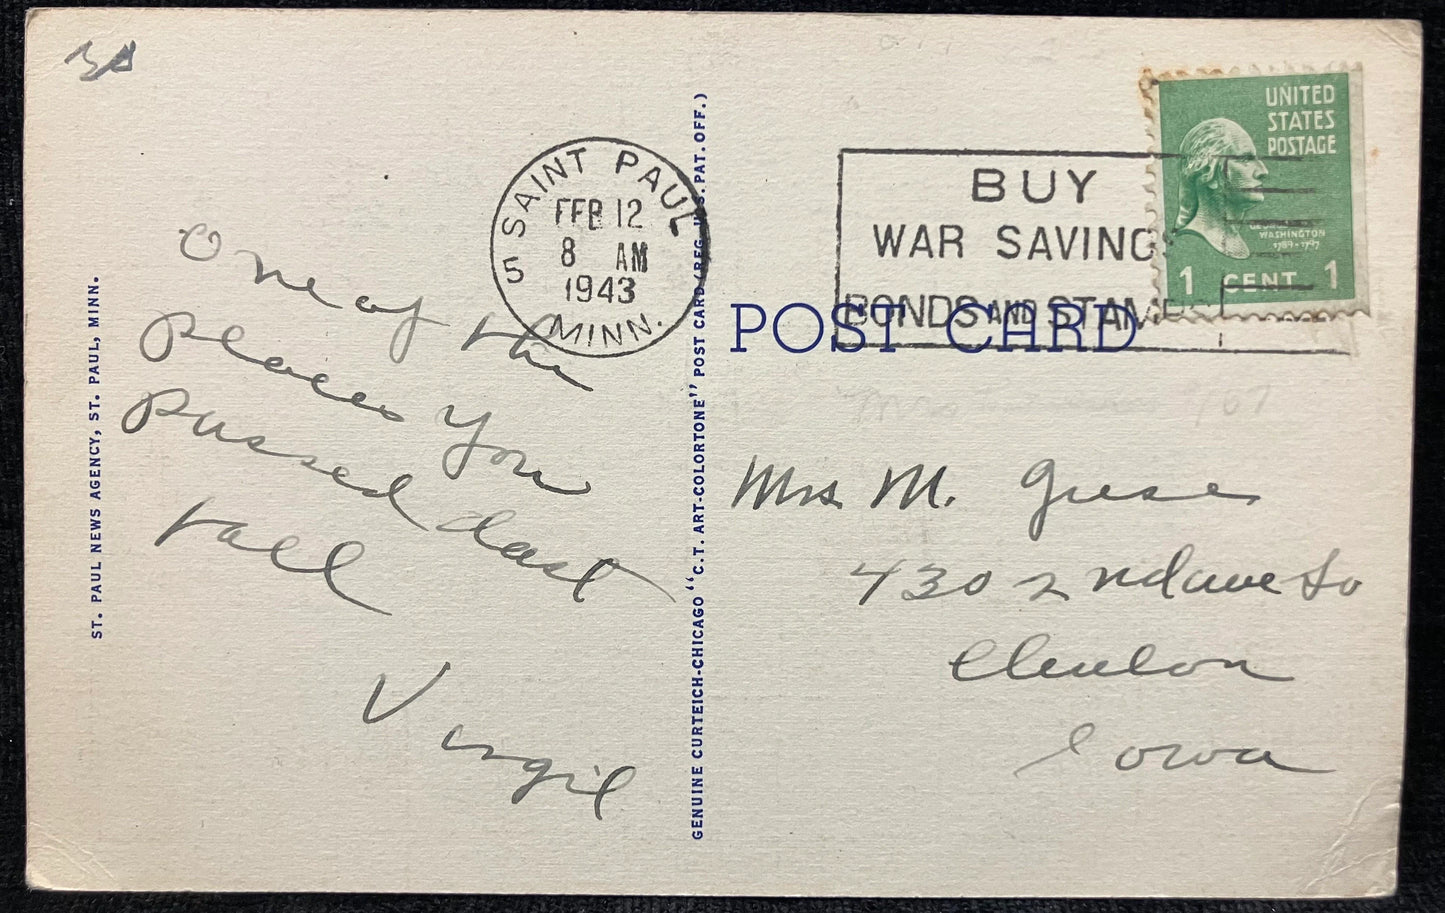 ST. PAUL NEWS AGENCY, ST. PAUL, MINN.
One of the
places you
passed last
fall
Virgil
SAINT PAUL
5
FEB 12
8 AM
1943
MINN.
GENUINE CURTEICH-CHICAGO "C.T. ART-COLORTONE" POST CARD (REG. U.S. PAT. OFF.)
BUY
WAR SAVINGS
BONDS AND STAMPS
UNITED
STATES
POSTAGE
GEORGE
WASHINGTON
1789-1797
1 CENT 1
POST CARD
Mrs M. Giese
430 2nd ave So
Clinton
Iowa